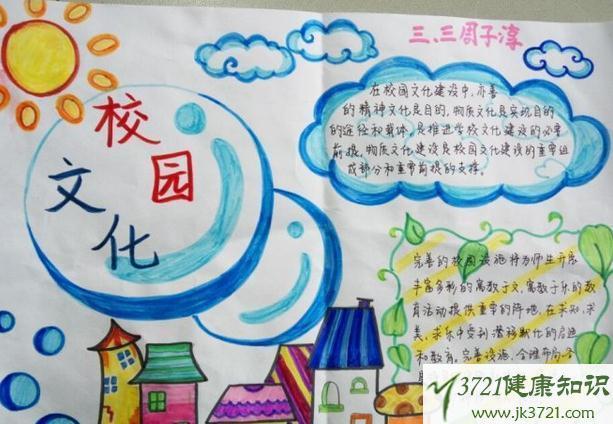 三、三周子淳
校园
文化
在校园文化建设中,完善
的精神文化是目的,物质文化是实现目的
的途径和载体,是推进学校文化建设的必要
前提。物质文化建设是校园文化建设的重要组
成部分和重要前提的支撑。
完善的校园设施将为师生开展
丰富多彩的寓教于文,寓教于乐的教
育活动提供重要的阵地,在求知、求
美、求乐中受到潜移默化的启迪
和教育。完善设施,合理布局,各
3721健康知识
www.jk3721.com